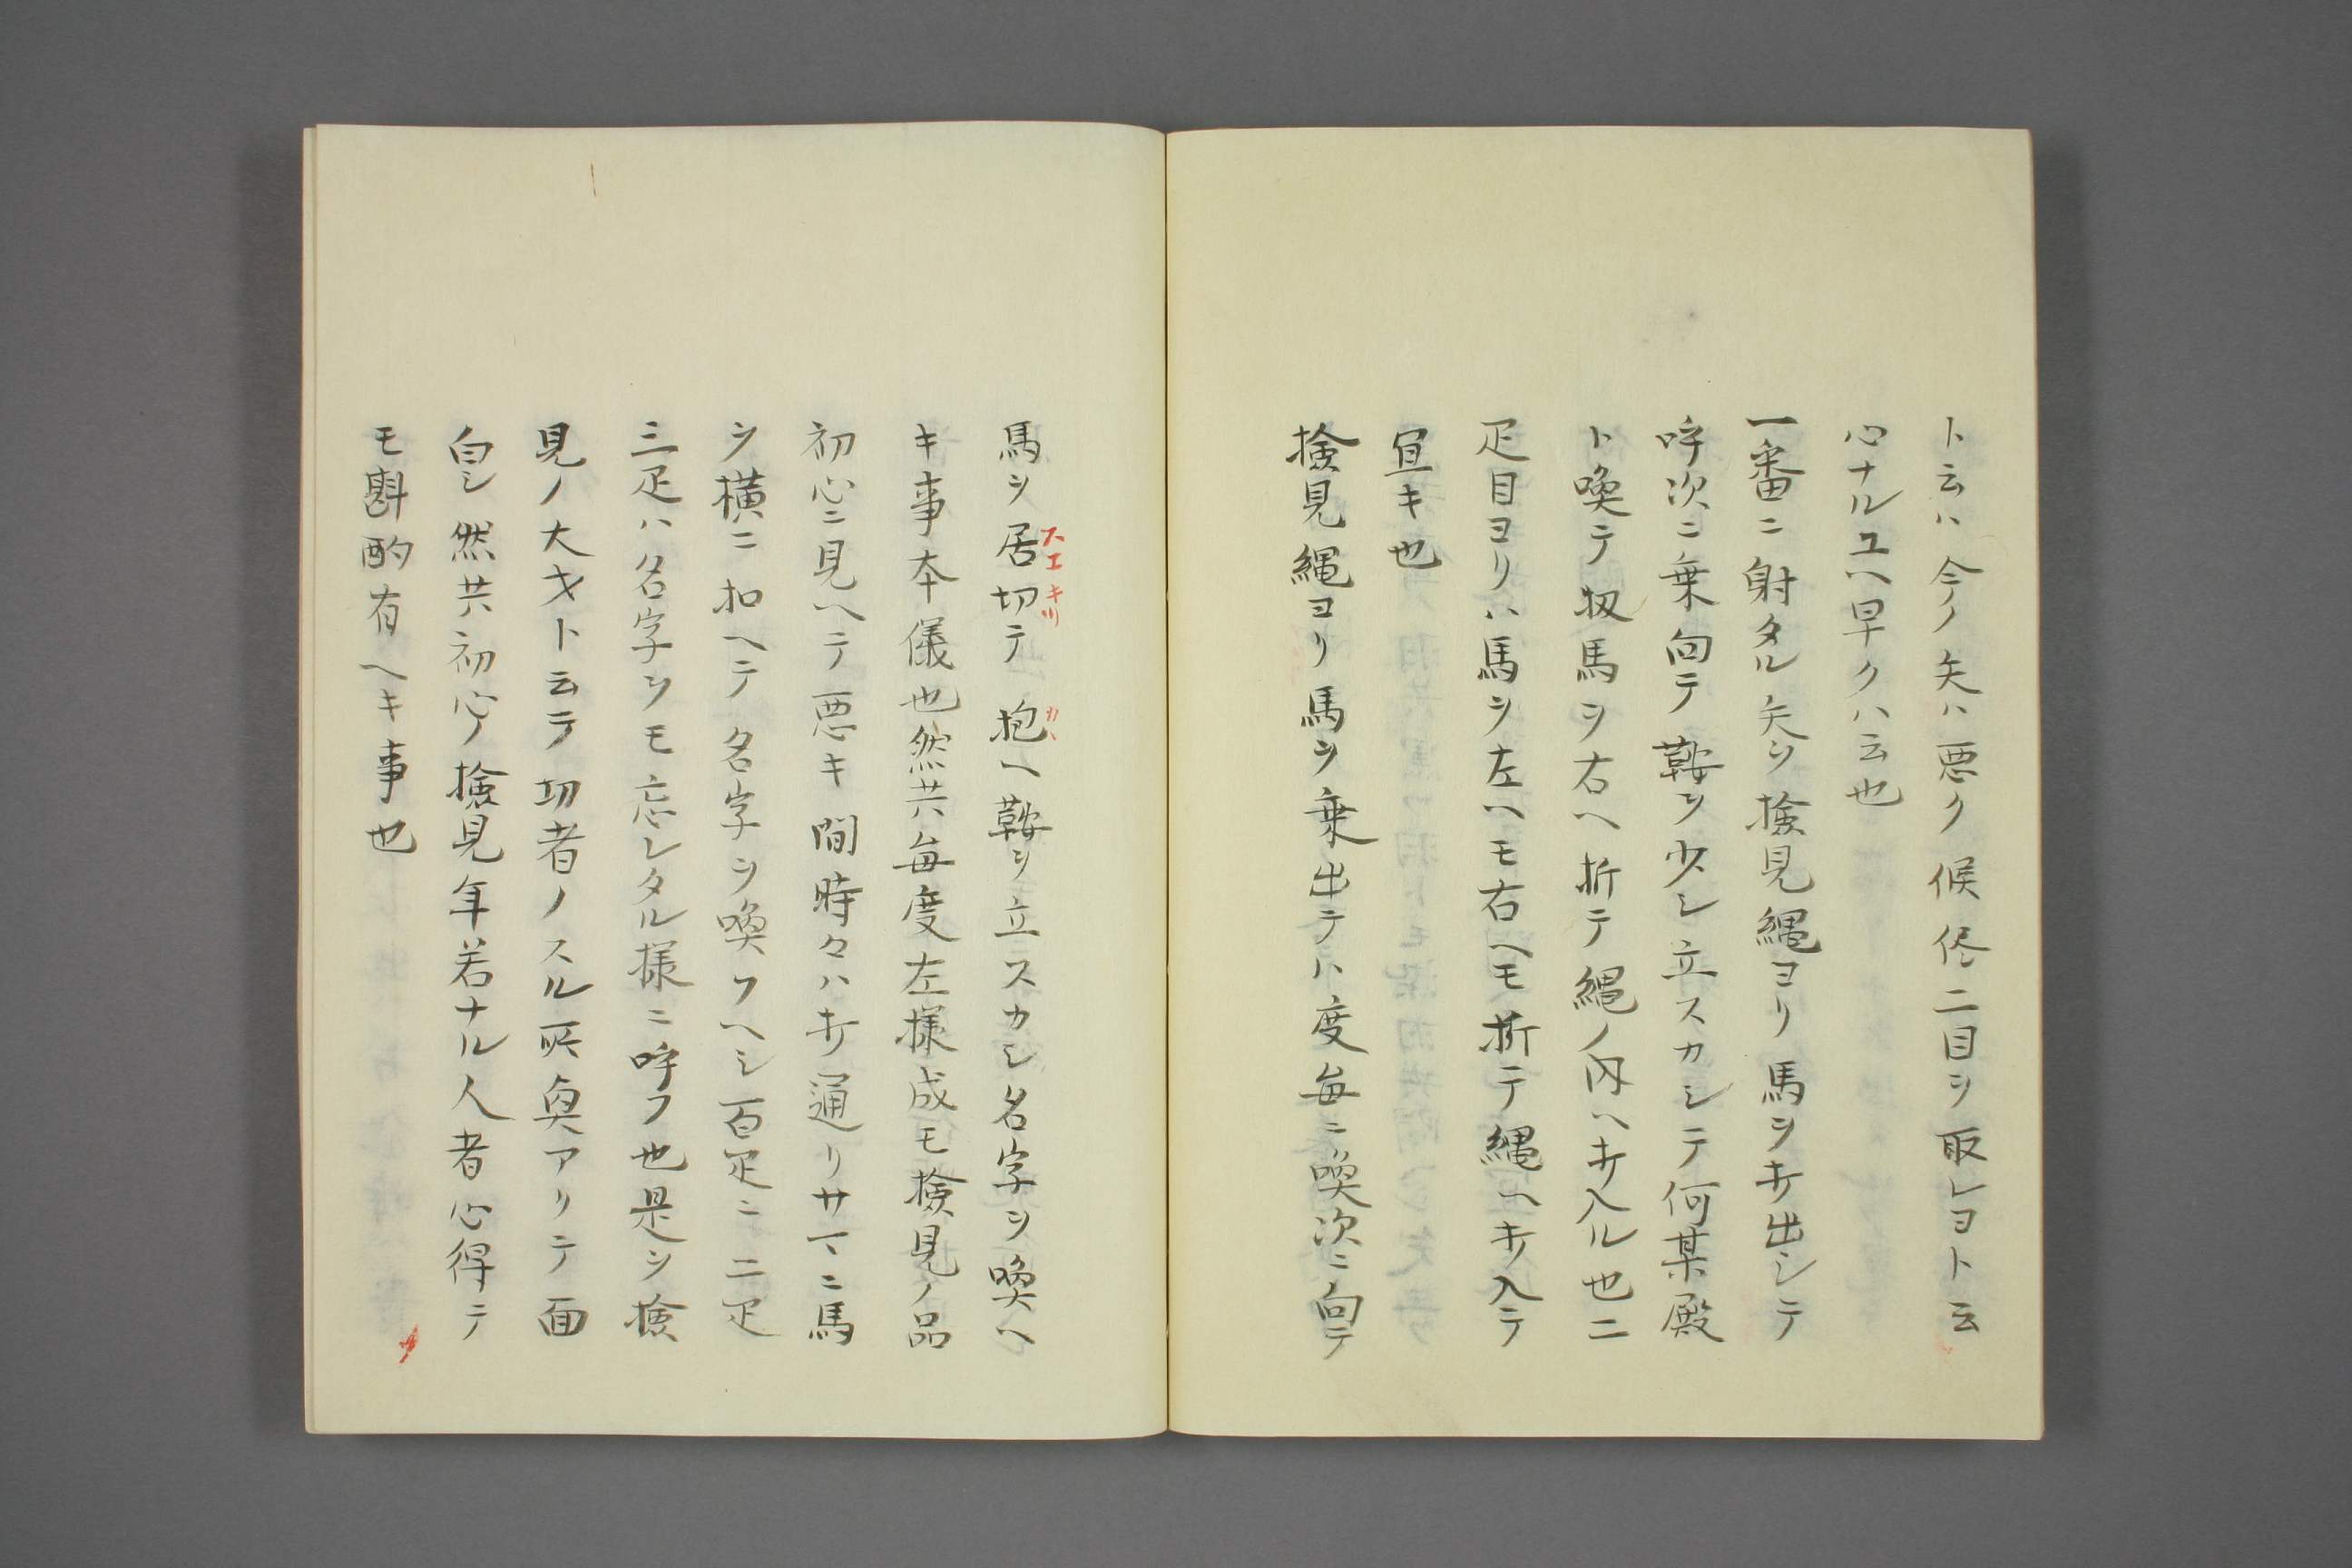 ト云ハ今ノ矢ハ悪ク候侭二目ヲ取レヨト云
心ナルユヘ早クハ云也
一番ニ射タル矢ヲ撿見縄ヨリ馬ヲ打出シテ
呼次ニ乗向テ鞍ヲ少シ立スカシテ何某殿
ト喚テ扨馬ヲ右ヘ折テ縄ノ内ヘ打入ル也二
疋目ヨリハ馬ヲ左ヘモ右ヘモ折テ縄ヘ打入テ
宜キ也
撿見縄ヨリ馬ヲ乗出テハ度毎ニ喚次ニ向テ
馬ヲ居切テ抱ヘ鞍ヲ立スカシ名字ヲ喚ヘ
スエキリ
カヽ
キ事本儀也然共毎度左様成モ撿見ノ品
初心ニ見ヘテ悪キ間時々ハ打通リサマニ馬
ヲ横ニ扣ヘテ名字ヲ喚フヘシ百疋ニ二疋
三疋ハ名字ヲモ忘レタル様ニ呼フ也是ヲ撿
見ノ大才ト云テ切者ノスル所奥アリテ面
白シ然共初心ノ撿見年若ナル人者心得テ
モ斟酌有ヘキ事也